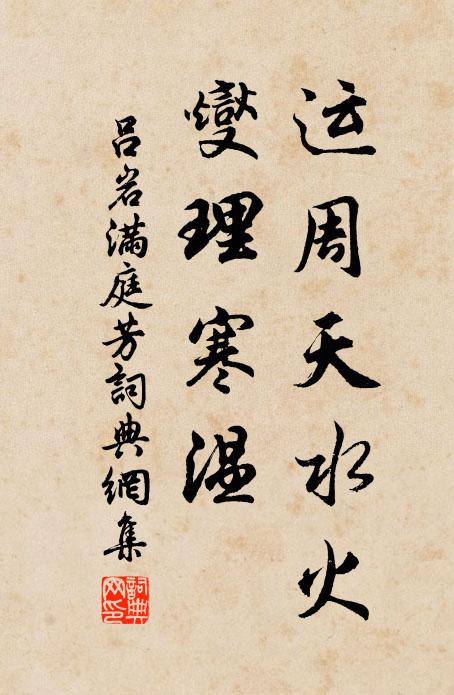 运周天水火
燮理寒温
吕岩满庭芳詞典網集
詞典網印